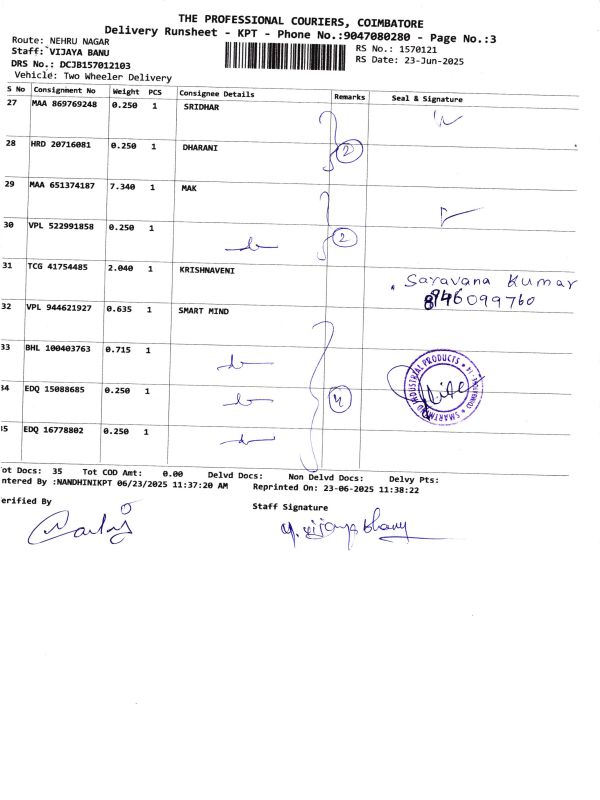 THE PROFESSIONAL COURIERS, COIMBATORE
Delivery Runsheet - KPT - Phone No.:9047080280 - Page No.:3
Route: NEHRU NAGAR
RS No.: 1570121
Staff: VIJAYA BANU
RS Date: 23-Jun-2025
DRS No.: DCJB157012103
Vehicle: Two Wheeler Delivery
S No Consignment No Weight PCS Consignee Details Remarks Seal & Signature
27 MAA 869769248 0.250 1 SRIDHAR
28 HRD 20716081 0.250 1 DHARANI 2
29 MAA 651374187 7.340 1 MAK
30 VPL 522991858 0.250 1 2
31 TCG 41754485 2.040 1 KRISHNAVENI Saravana Kumar
099760
32 VPL 944621927 0.635 1 SMART MIND
33 BHL 100403763 0.715 1
34 EDQ 15088685 0.250 1 4
35 EDQ 16778802 0.250 1
SMARTMIND INDUSTRIAL PRODUCTS
ot Docs: 35 Tot COD Amt: 0.00 Delvd Docs: Non Delvd Docs: Delvy Pts:
ntered By :NANDHINIKPT 06/23/2025 11:37:20 AM Reprinted On: 23-06-2025 11:38:22
erified By
Staff Signature